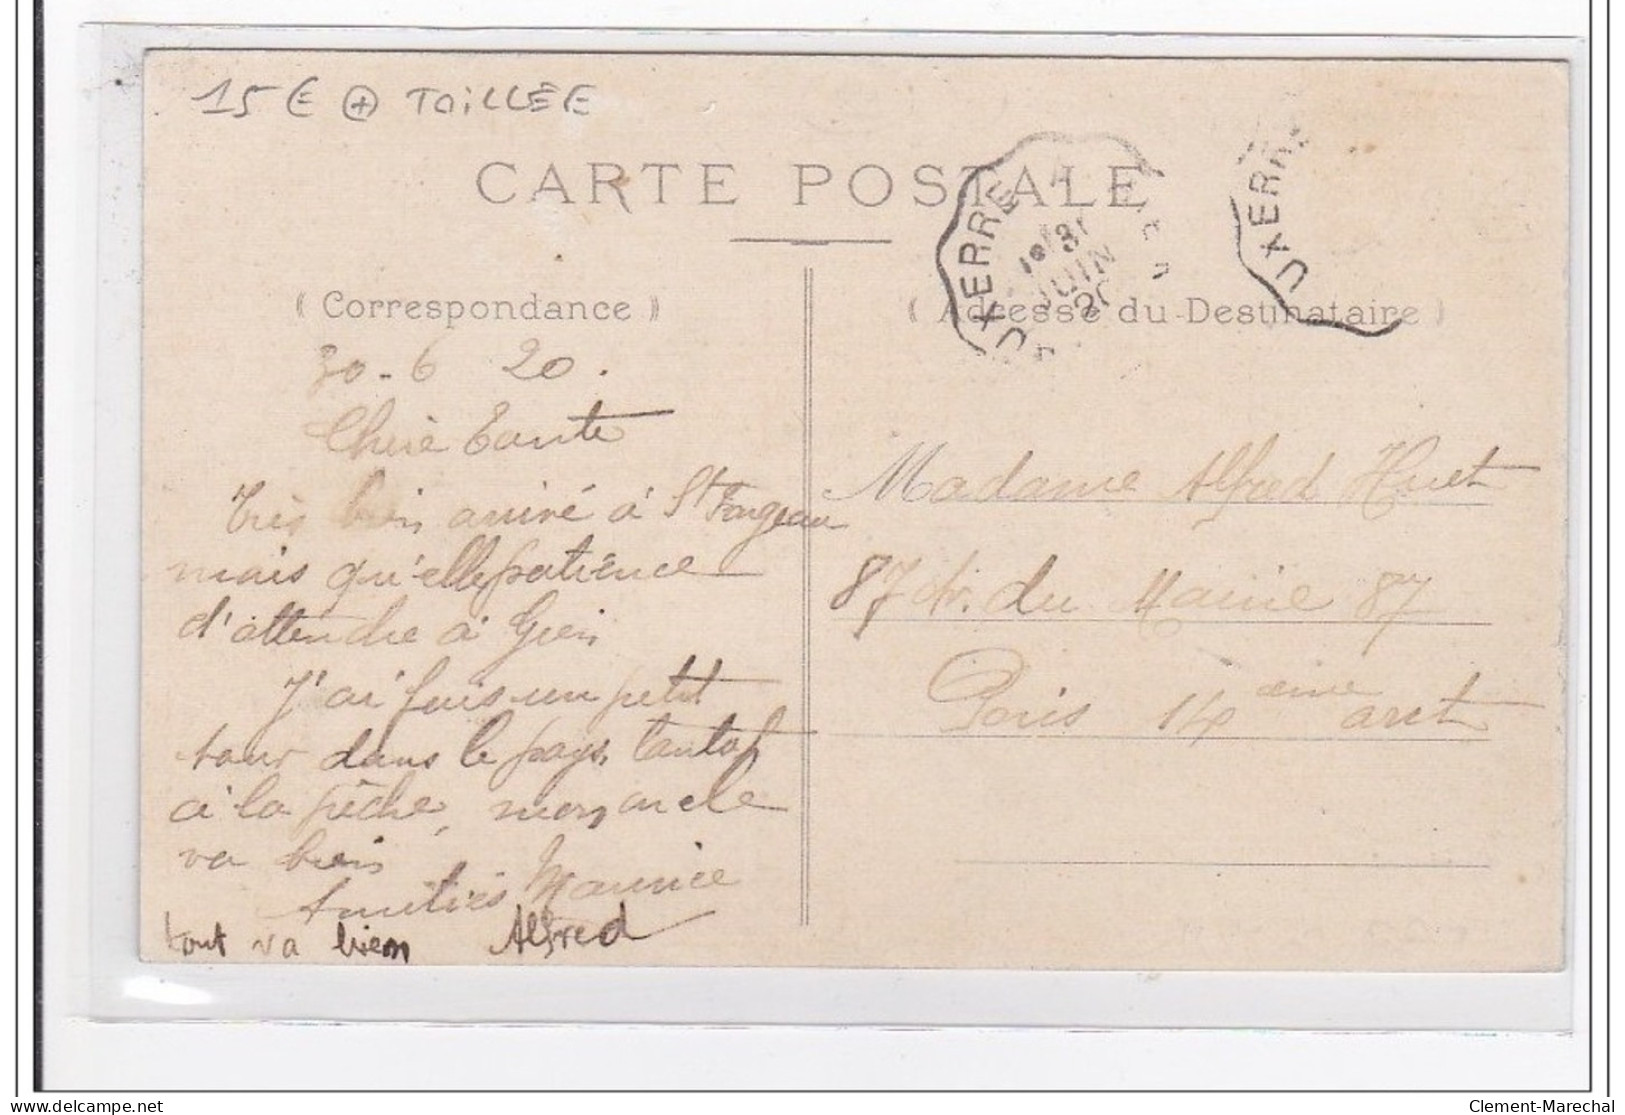 15 € + TOILLÉE
CARTE POSTALE
( Correspondance )
( Adresse du Destinataire )
UXERRE
JUIN
20
UXERR
30-6 20.
Chère Tante
Très bien arrivé à St Fargeau
mais qu'elle patience
d'attendre à Gien
J'ai fais un petit
tour dans le pays, tantot
à la pêche, mon oncle
va bien
Amitiés Maurice
tout va bien Alfred
Madame Alfred Huet
87 Av. du Maine 87
Paris 14 ème arct
Clement-Marechal